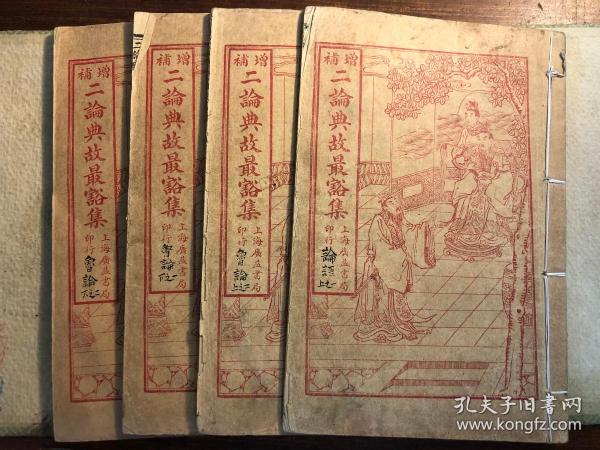 增補
二論典故最豁集
上海廣益書局
印行
論語
增補
二論典故最豁集
上海廣益書局
印行
魯論
增補
二論典故最豁集
上海廣益書局
印行
增補
二論典故最豁集
上海廣益書局
印行
魯論
孔夫子旧书网
www.kongfz.com